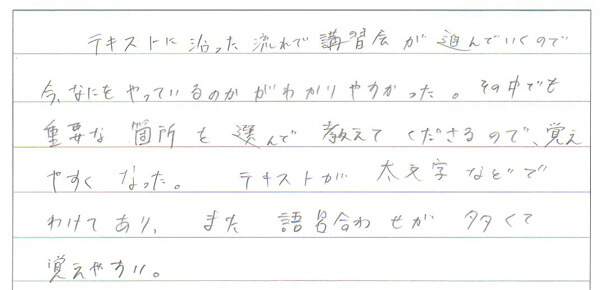 テキストに沿った流れで講習会が進んでいくので
今、なにをやっているのかがわかりやすかった。その中でも
重要な箇所を選んで教えてくださるので、覚え
やすくなった。 テキストが太文字などで
わけてあり、また語呂合わせが多くて
覚えやすい。